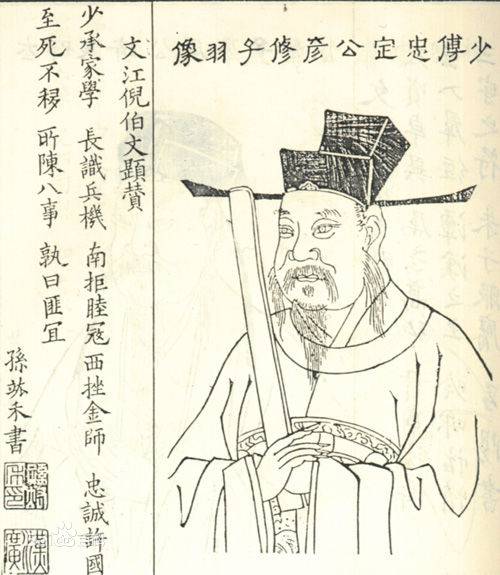 少傅忠定公彥修子羽像
文江倪伯文顯贊
少承家學 長識兵機 南拒睦冦 西挫金師 忠誠許國
至死不移 所陳八事 孰曰匪冝
孫 禾書